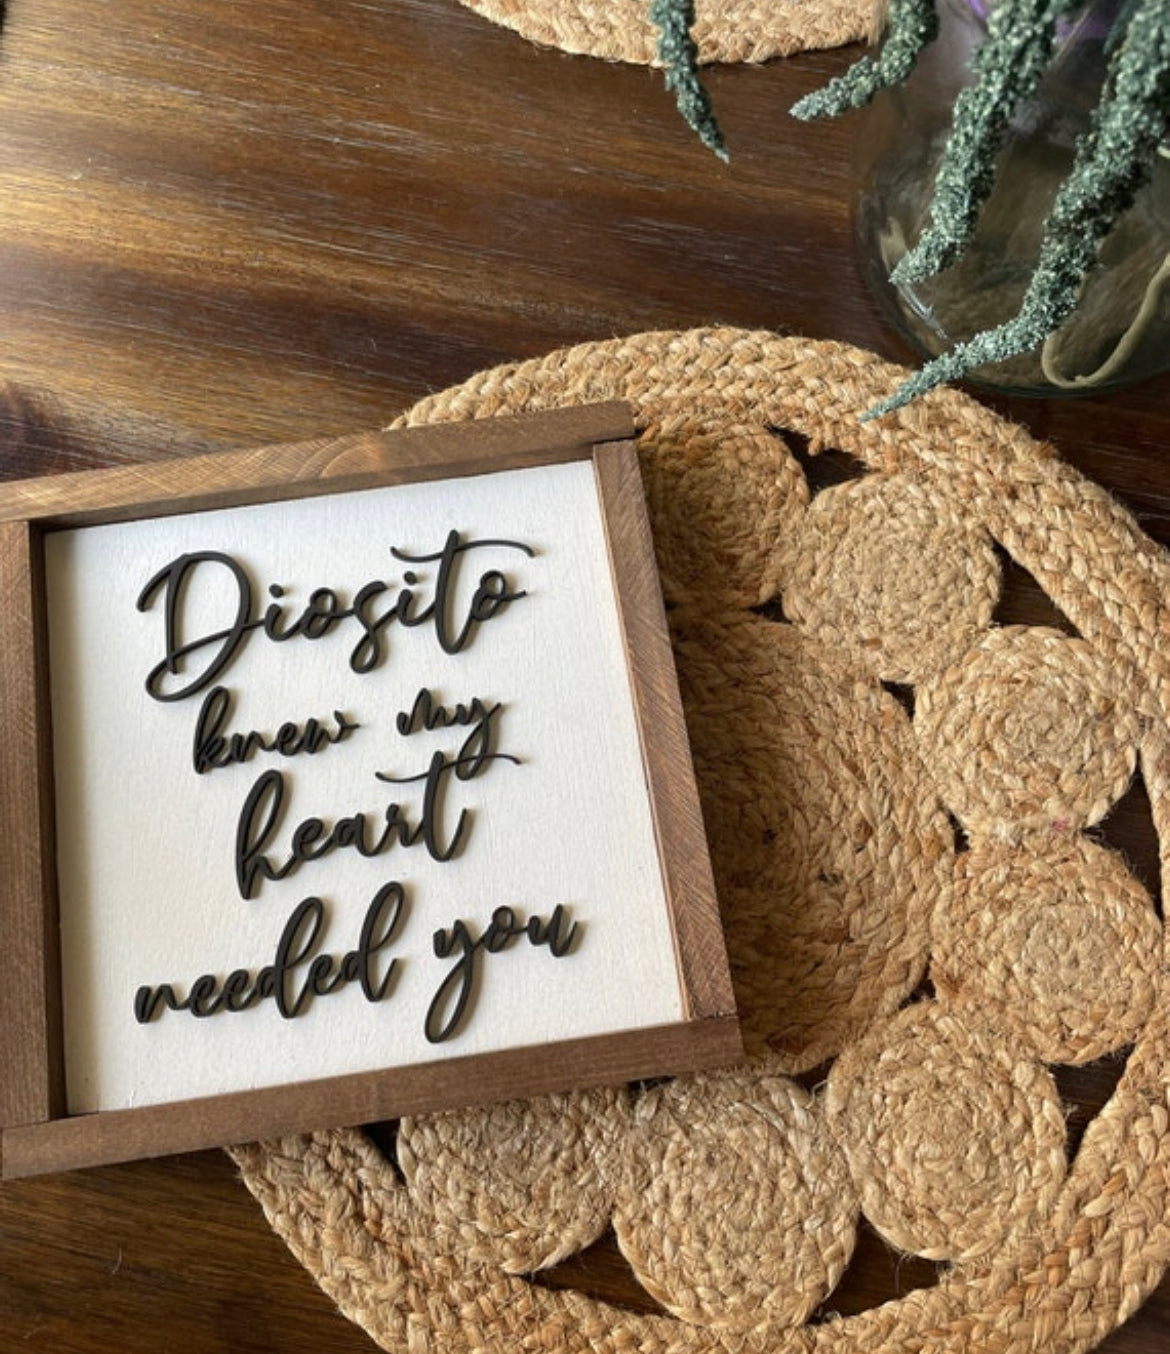 Diosito
knew my
heart
needed you